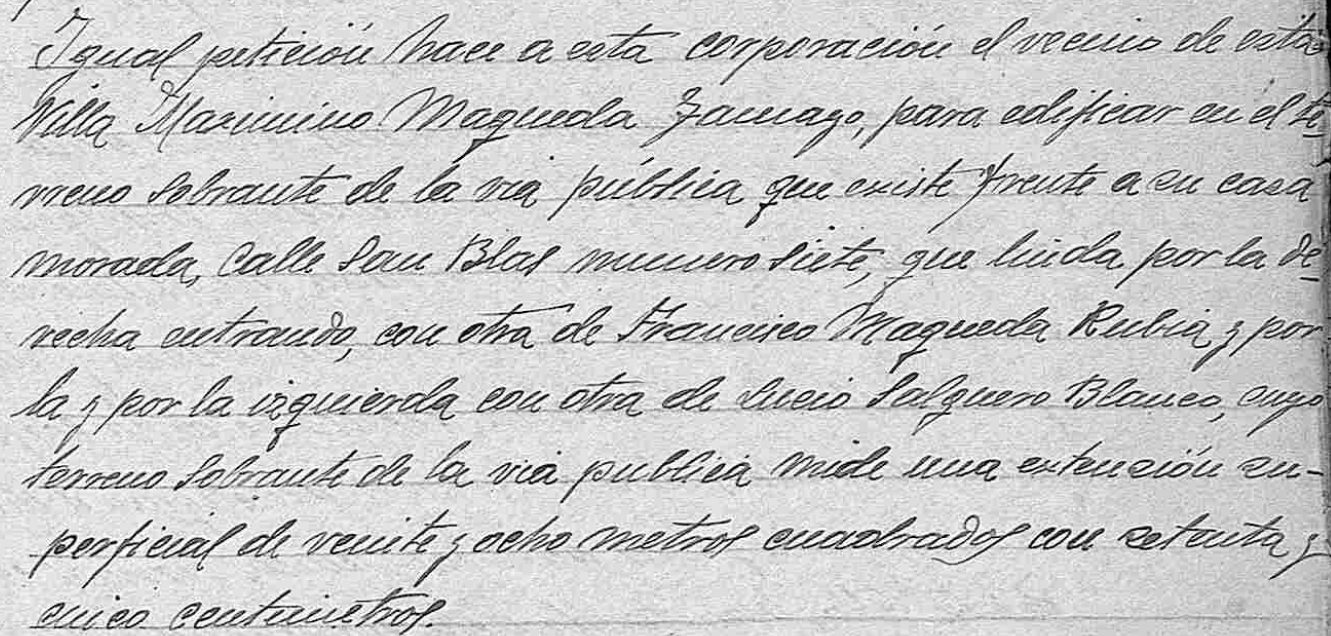 Igual petición hace a esta corporación el vecino de esta
Villa Maximino Maqueda Zamago, para edificar en el te-
rreno sobrante de la via pública que existe frente a su casa
morada, Calle San Blas numero siete, que linda por la de-
recha entrando, con otra de Francisco Maqueda Rubia y por
la y por la izquierda con otra de Lucio Salguero Blanco, cuyo
terreno sobrante de la via publica mide una extensión su-
perficial de veinte y ocho metros cuadrados con setenta y
cinco centimetros.